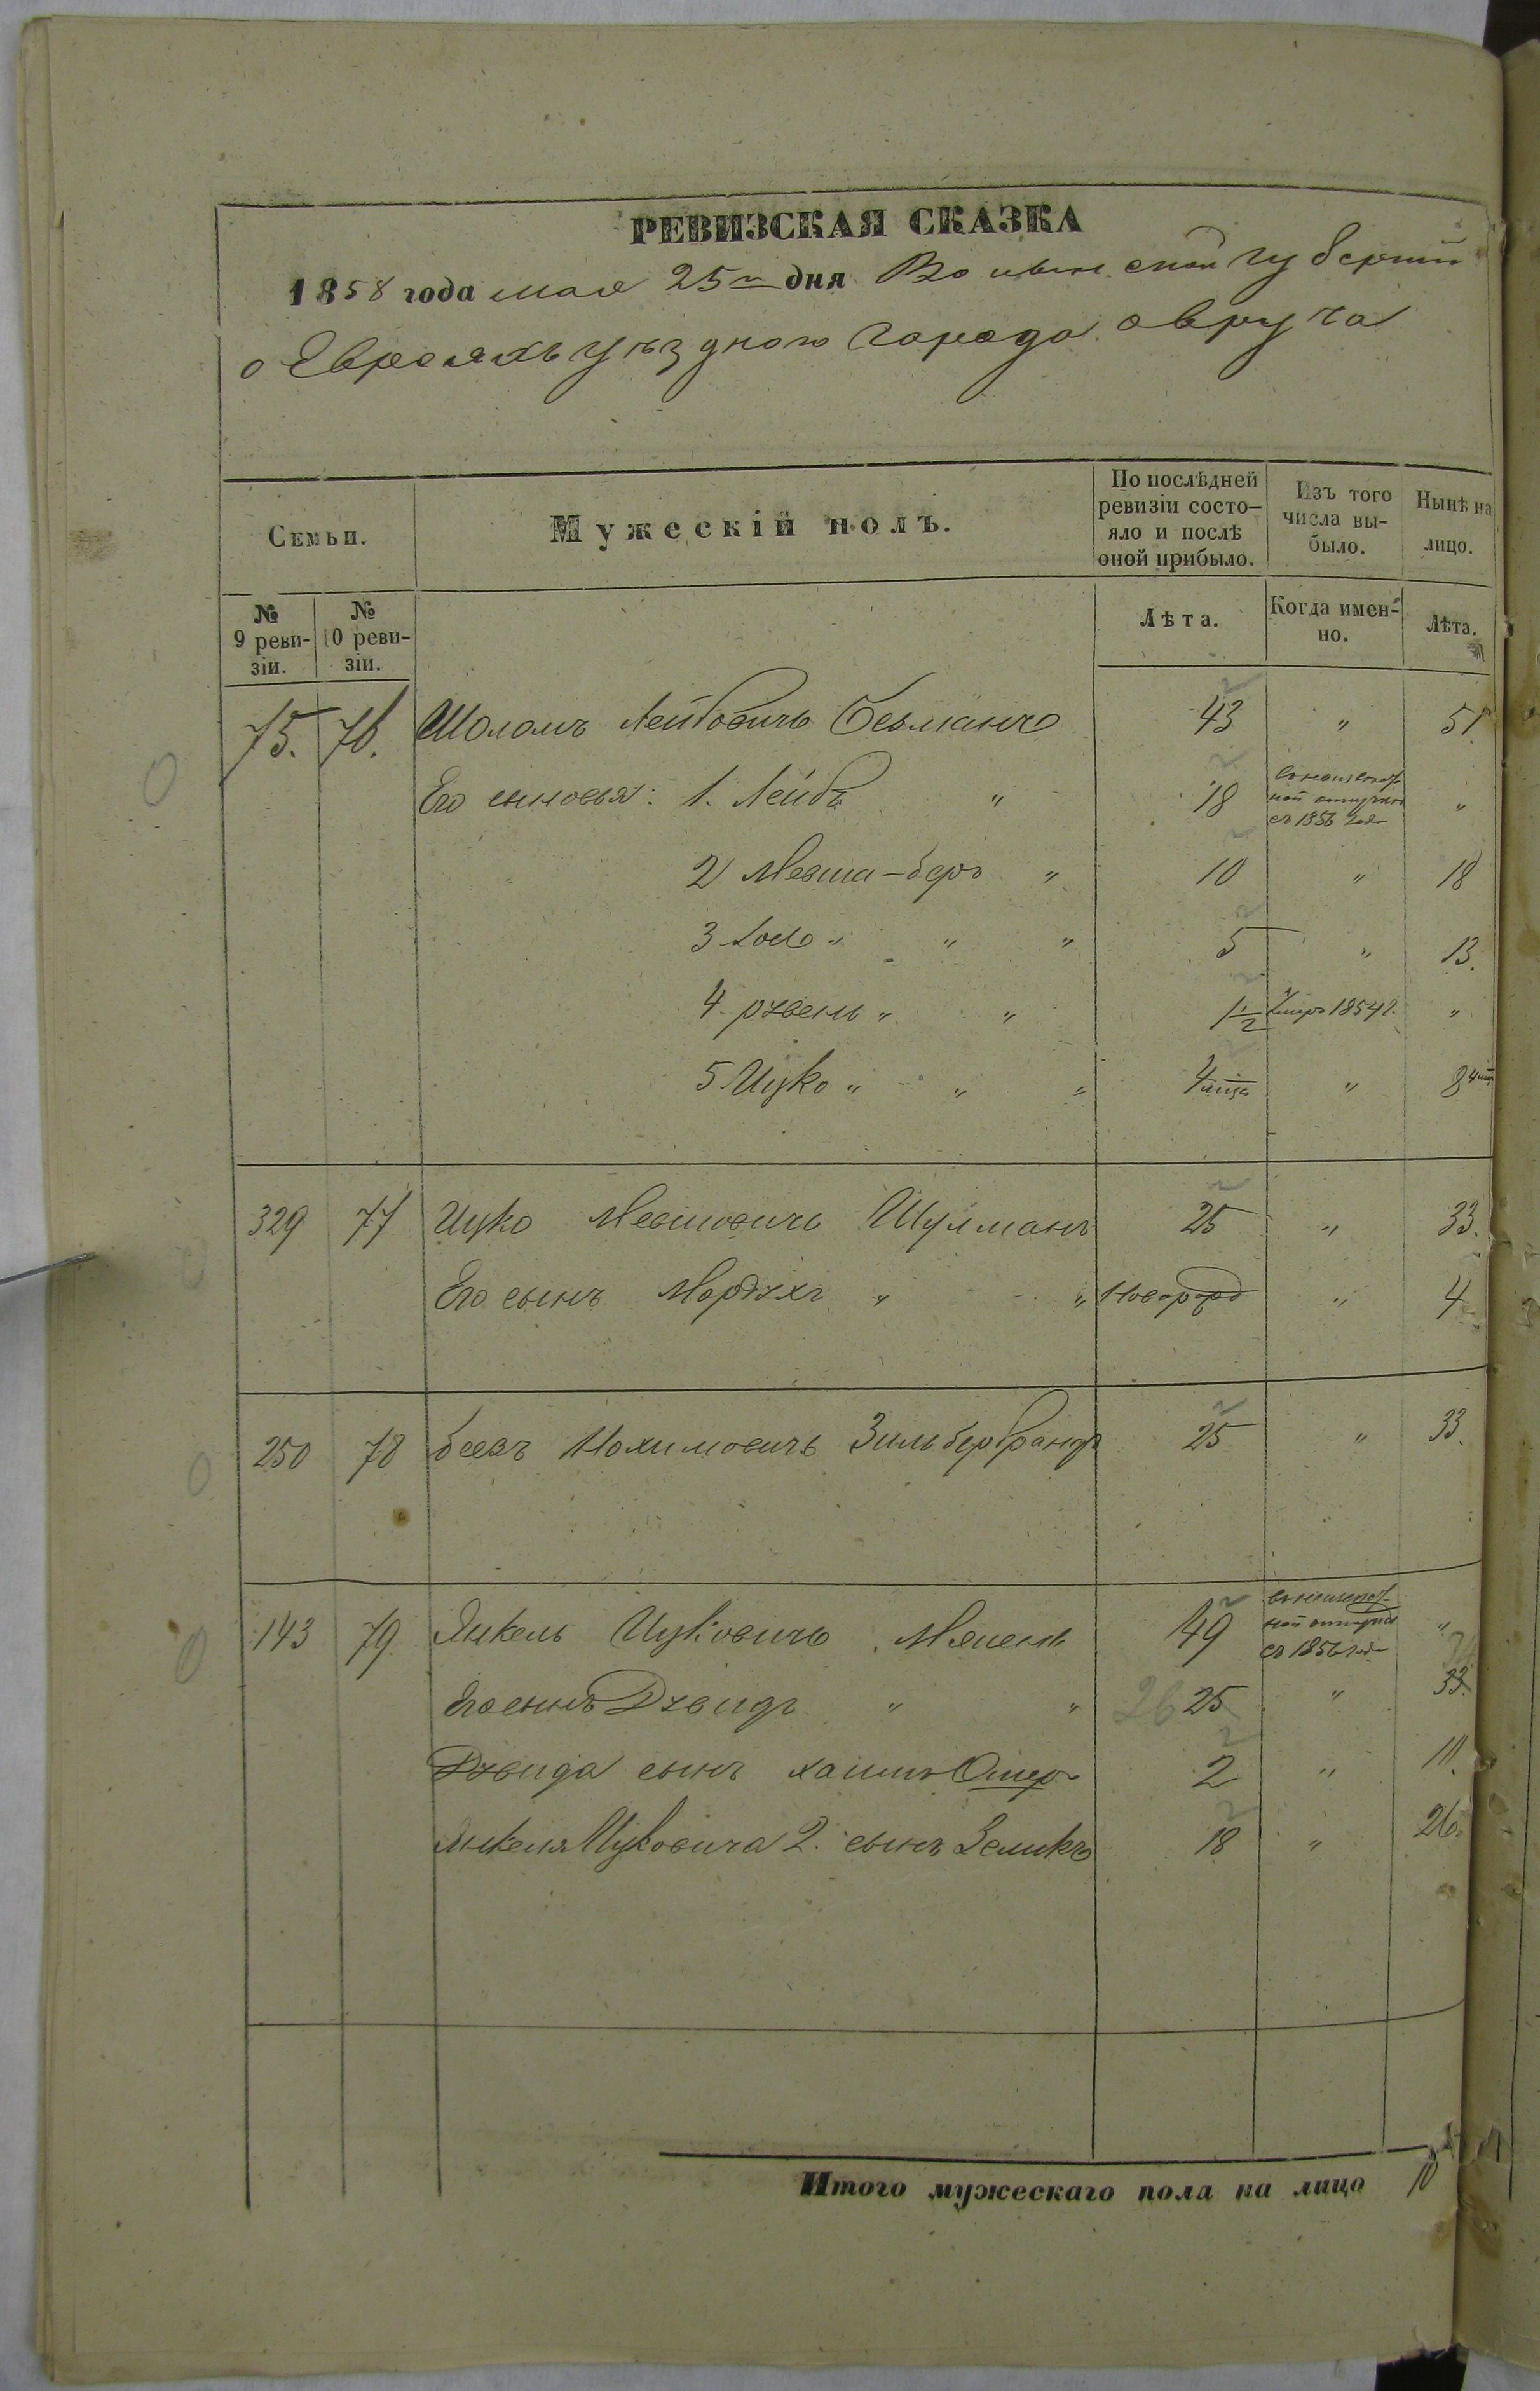 РЕВИЗСКАЯ СКАЗКА
1858 года мая 25го дня Волынской губернии
о Евреяхъ уѣзднаго города овруча
Семьи.
Мужескій полъ.
По послѣдней ревизіи состо-яло и послѣ оной прибыло.
Изъ того числа вы-было.
Нынѣ на лицо.
№ 9 реви-зіи.
№ 10 реви-зіи.
Лѣта.
Когда имен-но.
Лѣта.
75. 76. Шоломъ Лейбовичъ 43 " 51
Его сыновья: 1. Лейба " 18 съ 1856 года "
2 Мевша-беръ " 10 " 18
3 " " " 5 " 13.
4. рувень " " 1 1/2 умеръ 1854 г. "
5 Ицко " " " 4 мѣца " 8 4 мц
329 77 Ицко Мевшовичъ Шулманъ 25 " 33.
Его сынъ Мордухъ " " Новорожд " 4
250 78 Нохимовичъ Зильбербрандъ 25 " 33.
143 79 Янкель Ицковичъ 49 съ 1856 года "
Его сынъ Дувидъ " " 26 25 " 33.
Дувида сынъ хаимъ Ошеръ 2 " 11.
Янкеля Ицковича 2. сынъ Зеликъ 18 " 26.
Итого мужескаго пола на лицо 10